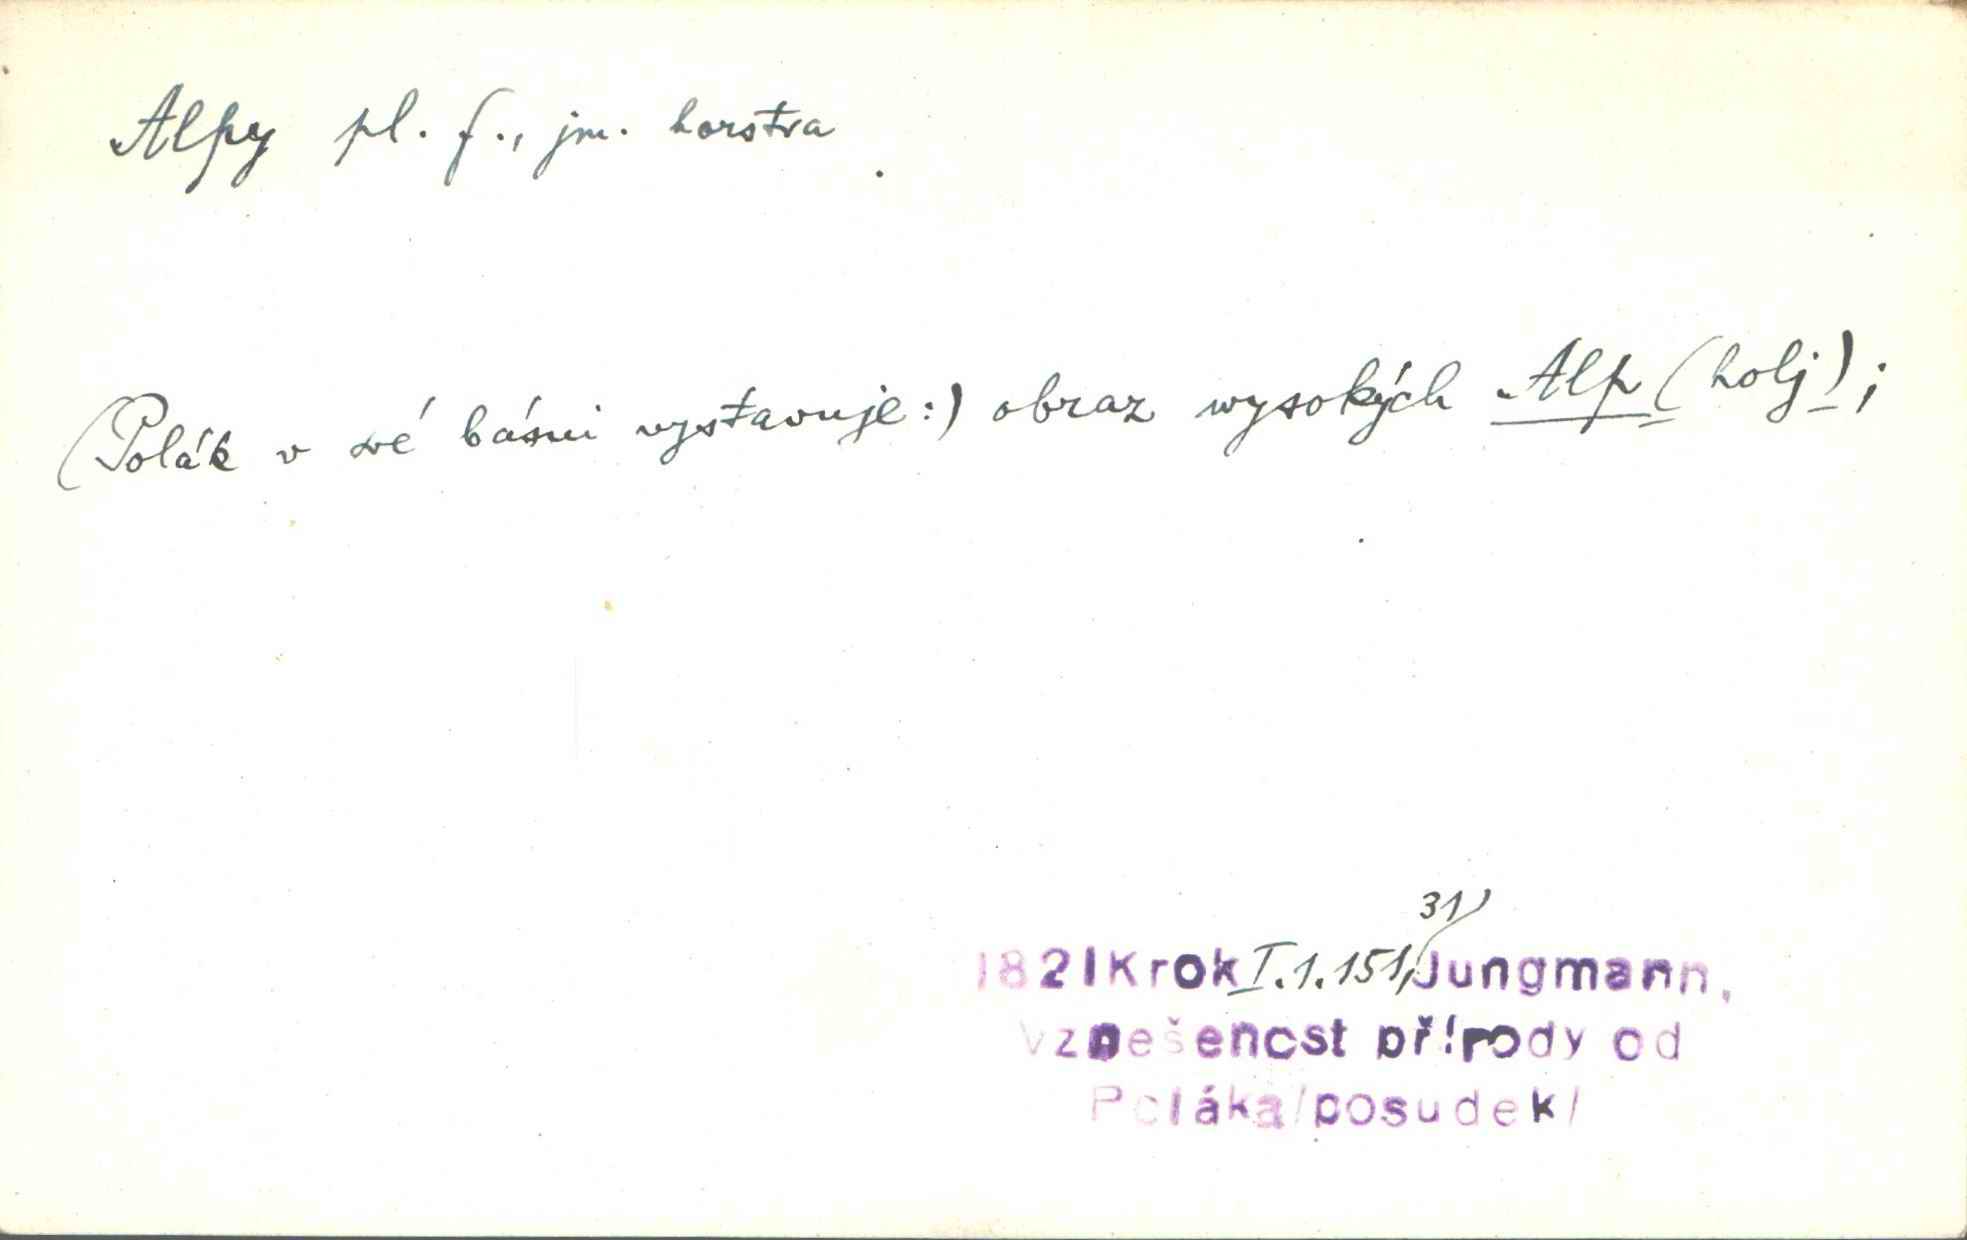 Alpy pl. f., jm. horstva
(Polák v své básni vystavuje:) obraz wysokých Alp (holj);
31)
1821 Krok I.1.151, Jungmann,
Vznešenost přírody od
Poláka/posudek/